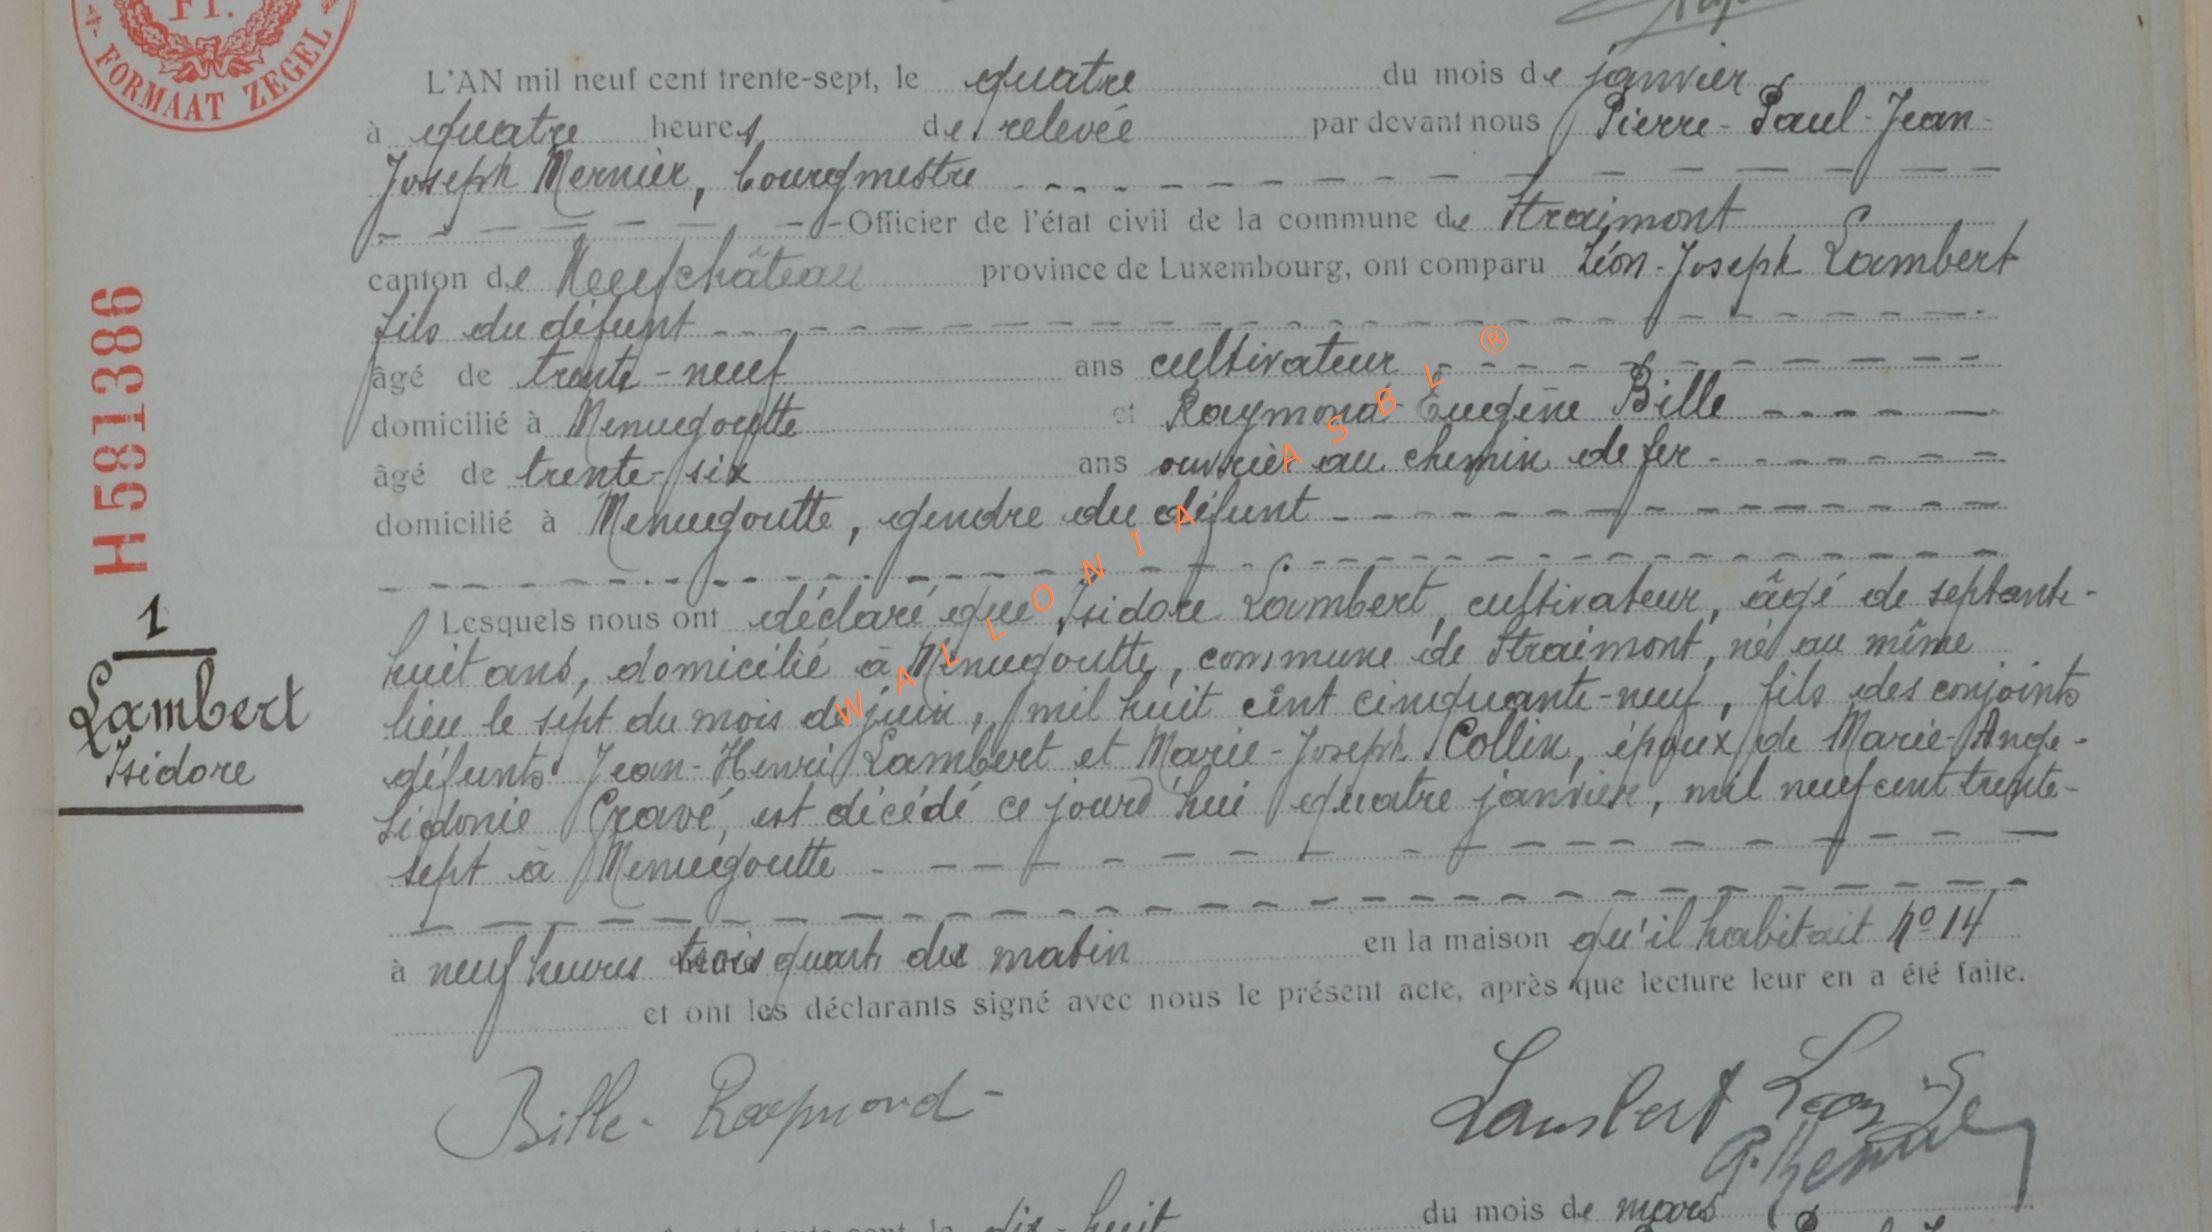 FORMAAT ZEGEL
L'AN mil neuf cent trente-sept, le quatre du mois de janvier
à quatre heures de relevée par devant nous Pierre-Paul-Jean-
Joseph Mernier, bourgmestre
Officier de l'état civil de la commune de Straimont
canton de Neufchâteau province de Luxembourg, ont comparu Léon-Joseph Lambert
fils du défunt
âgé de trente-neuf ans cultivateur
domicilié à Menugoutte et Raymond Eugène Bille
âgé de trente-six ans ouvrier au chemin de fer
domicilié à Menugoutte, gendre du défunt
Lesquels nous ont déclaré que Isidore Lambert, cultivateur, âgé de septante-
huit ans, domicilié à Menugoutte, commune de Straimont, né au même
lieu le sept du mois de juin, mil huit cent cinquante-neuf, fils des conjoints
défunts Jean-Henri Lambert et Marie-Joseph Collin, époux de Marie-Ange-
Sidonie Gravé, est décédé ce jourd'hui quatre janvier, mil neuf cent trente-
sept à Menugoutte
à neuf heures trois quarts du matin en la maison qu'il habitait no 14
et ont les déclarants signé avec nous le présent acte, après que lecture leur en a été faite.
Bille Raymond
Lambert Léon
H581386
1
Lambert
Isidore
WALLONIA ASBL ®
dix-huit du mois de mars